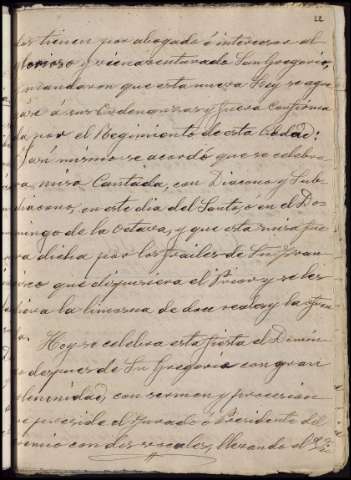 22
tos tienen por abogado é intercesor al
glorioso y bienaventurado San Gregorio,
mandaron que esta nueva Ley se agre
gára á sus Ordenanzas y fuera confirma
da por el Regimiento de esta Ciudad:
asi mismo se acordó que se celebra
ra, misa Cantada, con Diacono y Sub-
diacono, en este dia del Santo, ó en el Do-
mingo de la Octava, y que esta misa fue
ra dicha por los frailes de Sn. Fran-
cisco que dispusiera el Prior y se les
diera la limosna de doce reales y la
da.
Hoy se celebra esta fiesta el Domin
go despues de Sn Gregorio con gran
solemnidad, con sermon y procesion
que preside el Jurado ó Presidente del
Gremio con dos vocales, llevando el